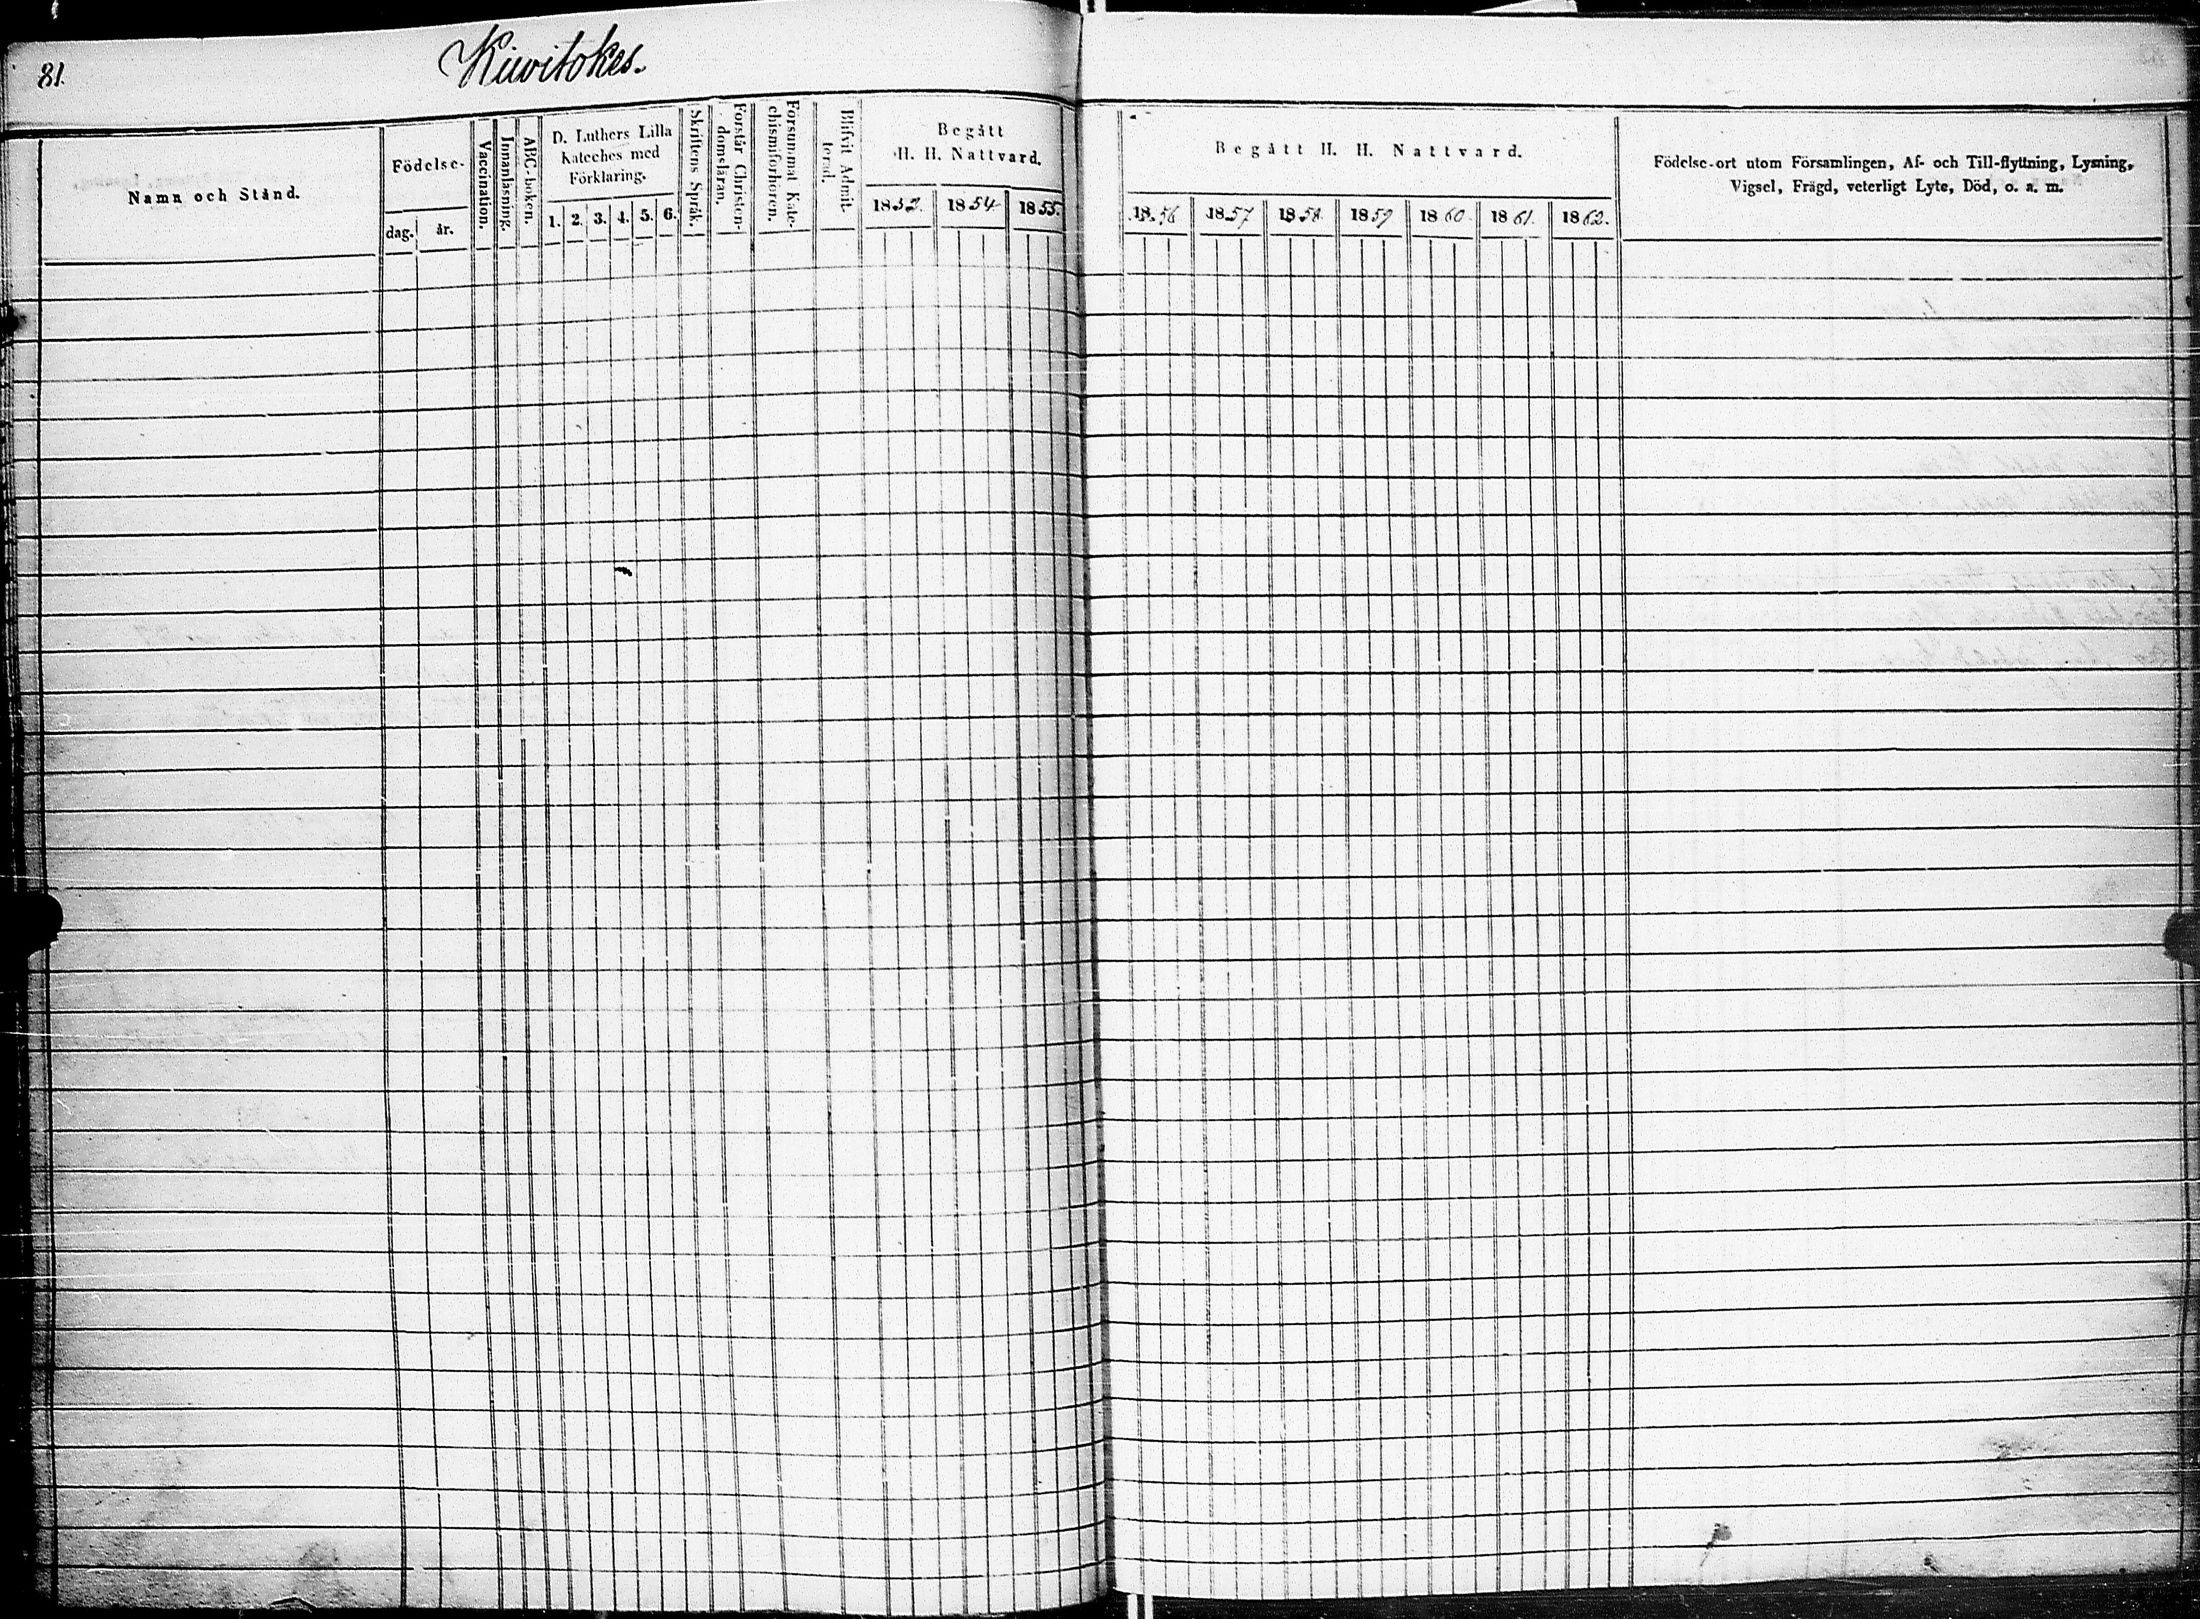 81.
Kiwitokes.
Namn och Stånd.
Födelse-
dag.
år.
Vaccination.
Innanläsning.
ABC-boken.
D. Luthers Lilla
Kateches med
Förklaring.
1. 2. 3. 4. 5. 6.
Skriftens Språk.
Förstår Christen-
domsläran.
Försummat Kate-
chismiförhören.
Blifvit Admit-
terad.
Begått
H. H. Nattvard.
1854. 1855.
Begått H. H. Nattvard.
1856 1857 1858. 1859 1860. 1861. 1862.
Födelse-ort utom Församlingen, Af- och Till-flyttning, Lysning,
Vigsel, Frägd, veterligt Lyte, Död, o. a. m.